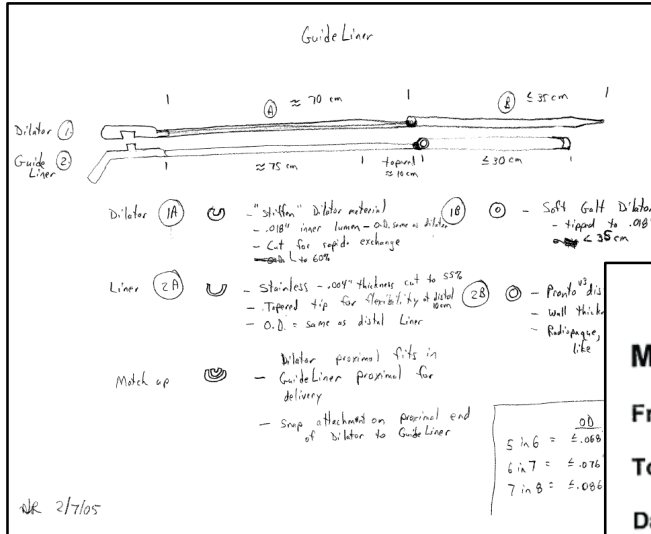 Guide Liner
A ≈ 70 cm
B ≤ 35 cm
Dilator 1
Guide Liner 2
≈ 75 cm
tapered ≈ 10cm
≤ 30 cm
Dilator 1A - "Stiffen" Dilator material
- .018" inner lumen - O.D. same as dilator
- Cut for rapide exchange
to 60%
1B - Soft Dilator
- tipped to .018"
< 35 cm
Liner 2A - Stainless - .004" thickness cut to 55%
- Tapered tip for flexibility at distal 10cm
- O.D. = same as distal Liner
2B - Pronto V3
- Wall
- Radiopaque,
like
Match up - Dilator proximal fits in
Guide Liner proximal for
delivery
- Snap attachment on proximal end
of Dilator to Guide Liner
OD
5 in 6 = ≤ .068
6 in 7 = ≤ .076
7 in 8 = ≤ .086
2/7/05
M
Fr
To
Da